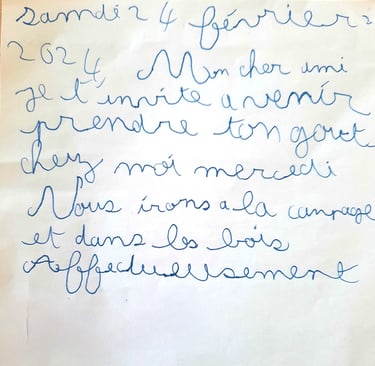 samdi 24 février 2
2024, Mon cher ami
je t'invite a venir
prendre ton gout
chez moi mercedi
Nous irons a la canpage
et dans les bois
Affedueusement